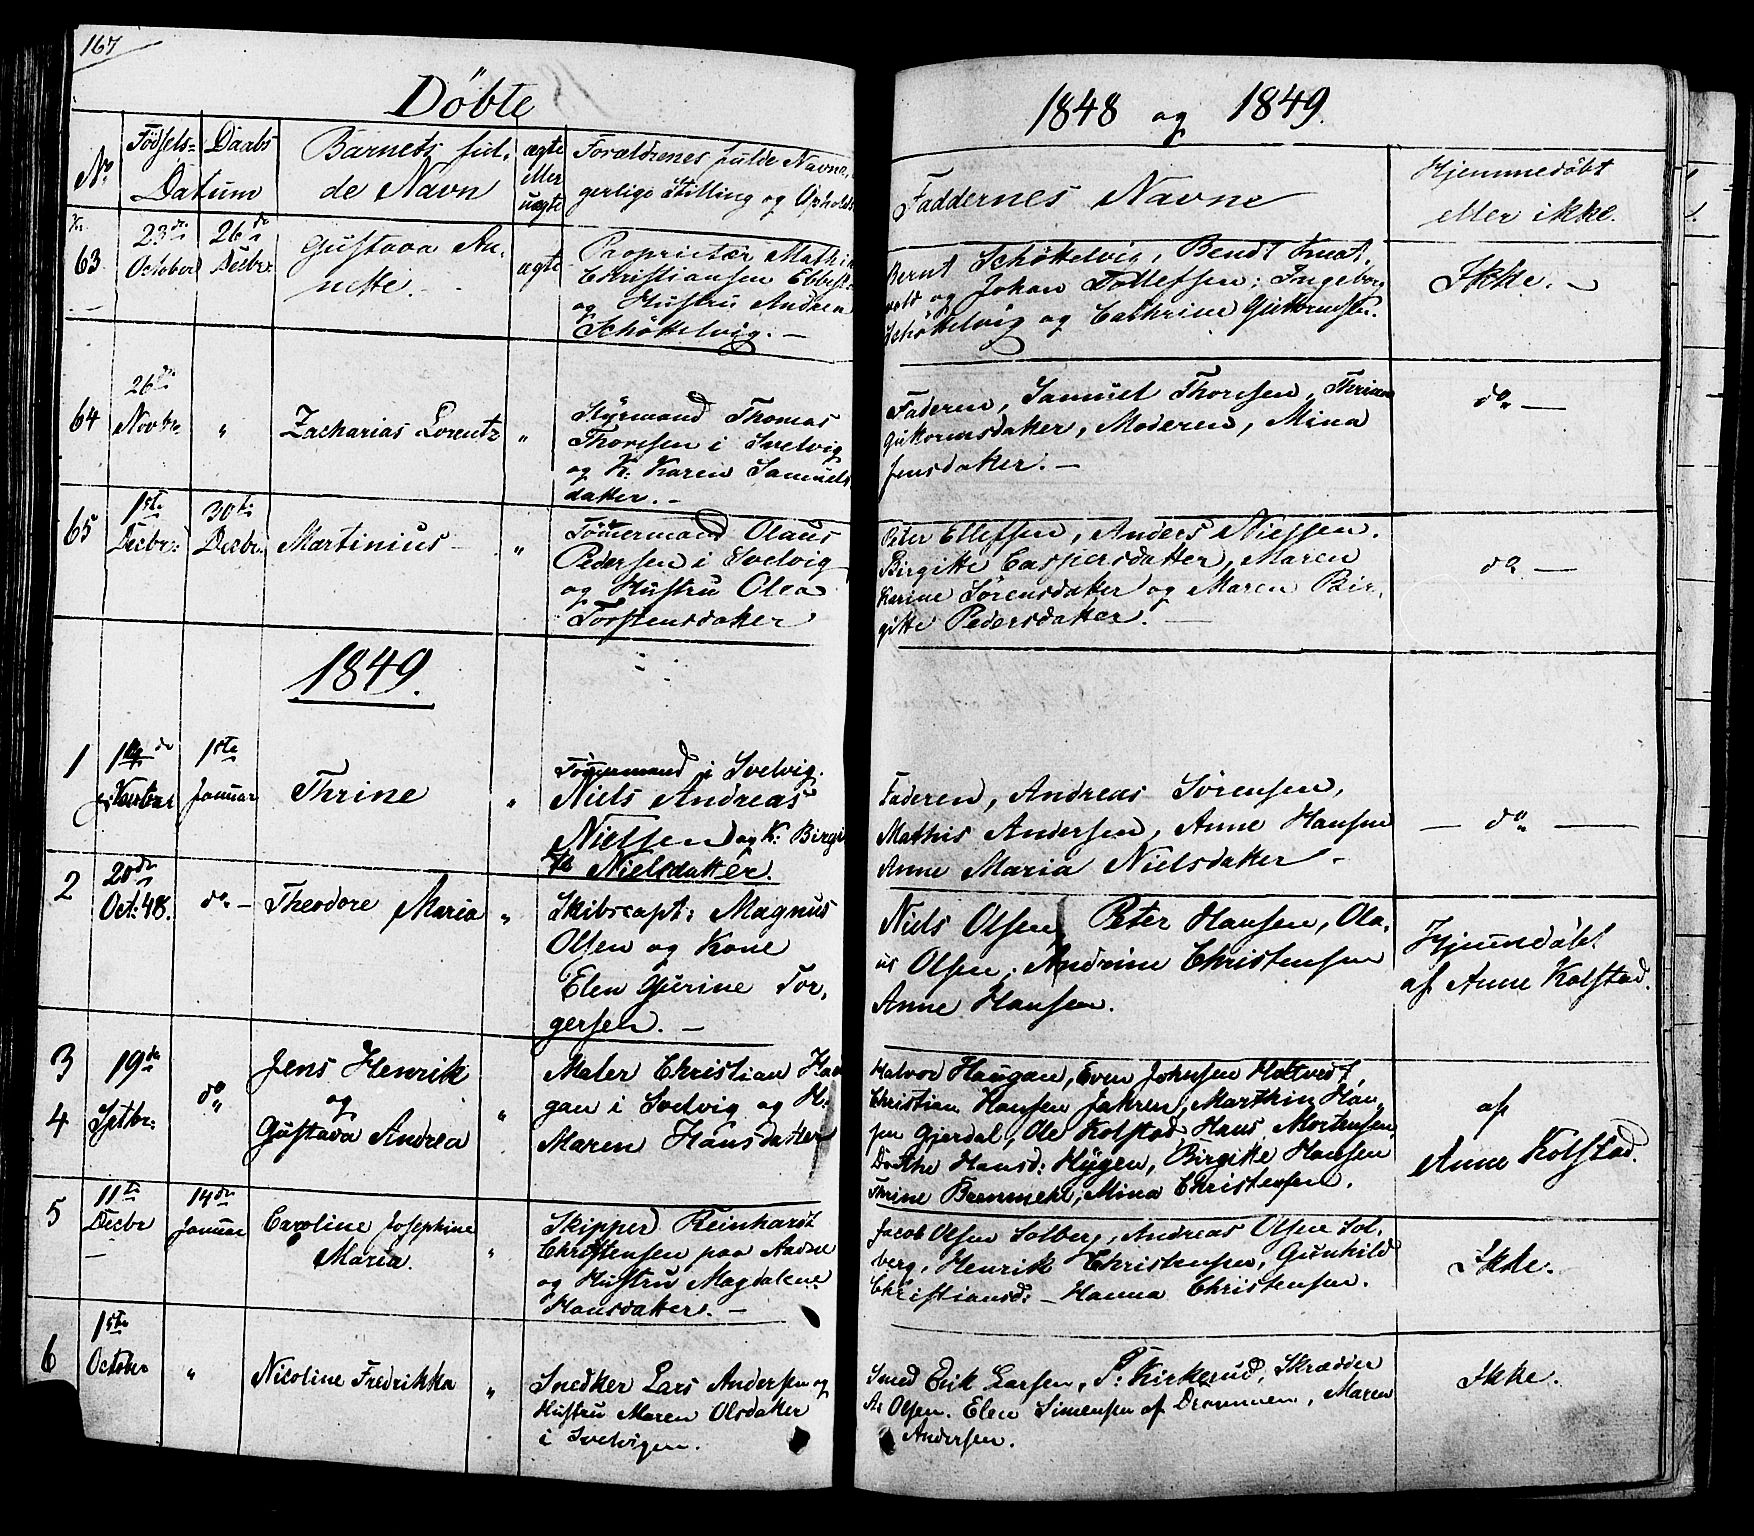 167
Döbte
1848 og 1849.
No
Födsels= Daabs
Datum
Barnets ful,
de Navn
ægte
eller
uægte
Forældrenes fulde Navne,
gerlige Stilling og Ophold
Faddernes Navne
Hjemmedöbt
eller ikke.
63
23de
October
26de
Decbr
Gustava An,
nette.
ægte
Proprietær Mathi
Christiansen
og Hustru Andrea
Schöttelvig. —
Bernt Schöttelvig, Bendt
og Johan Tollefsen; Ingeborg
Schöttelvig og Cathrine
Ikke. —
64
26de
Novbr.
"
Zacharias Lorentz
"
Styrmand Thomas
Thoresen i Svelvig
og K: Karen Samuels
datter. —
Faderen, Samuel Thoresen,
Guttormsdatter, Moderen, Mina
Jensdatter. —
do —
65
1ste
Decbr:
30te
Decbr.
Martinius —
"
Tömermand Olaus
Pedersen i Svelvig
og Hustru Olea
Torstensdatter
Peter Ellefsen, Anders Nielsen.
Birgitte Caspersdatter, Maren
Karine Sörensdatter og Maren Bir,
gitte Pedersdatter. —
do —
1849.
1
1ste
Januar
Thrine
"
Tömermand i Svelvig.
Niels Andreas
Nielsen og K: Birgi
tte Nielsdatter.
Faderen, Andreas Sörensen,
Mathis Andersen, Anne Hansen
Anne Maria Nielsdatter —
— do —
2
20de
Oct: 48.
do —
Theodore Maria
"
Skibscapt: Magnus
Olsen og Kone
Elen Gurine Tor,
gersen. —
Niels Olsen, Peter Hansen, Ola,
us Olsen, Andrine Christensen
Anne Hansen.
Hjemmedöbt
af Anne Kolstad.
3
4
19de
Sptbr:
do
Jens Henrik
og
Gustava Andrea
"
Maler Christian Hau
gan i Svelvig og H:
Maren Hansdatter
Halvor Haugan, Even Johnsen Holtvedt,
Christian Hansen Jahren, Marthin Han,
sen Gjerdal, Ole Kolstad, Hans Mortensen,
Dorthe Hansd: Hygen, Birgitte Hansen
Thrine Bremmehl, Mina Christensen.
af
Anne Kolstad.
5
11te
Decbr
—
14de
Januar
Caroline Josephine
Maria.
"
Skipper Reinhardt
Christensen paa
og Hustru Magdalene
Hansdatter. —
Jacob Olsen Solberg, Andreas Olsen Sol,
berg, Henrik Christensen, Gunhild
Christiansd: — Hanna Christensen.
Ikke.
6
1ste
October
"
Nicoline Fredrikka
"
Snedker Lars Andersen og
Hustru Maren Olsdatter
i Svelvigen.
Smed Erik Larsen, P: Kirkerud, Skrædder
A: Olsen. Elen Simensen af Drammen, Maren
Andersen.
Ikke.